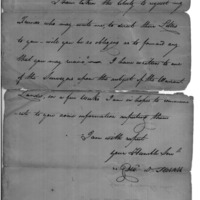 I have taken the liberty of requesting my
Friends who may write me, to direct their Letters
to you - will you be so obliging as to forward any
that you may receive - I have written to one
of the Surveyors upon the subject of the
Lands, in a few weeks I am in hopes to commu-
nicate to you some information respecting them
I am with respect
your Humble Serv.t